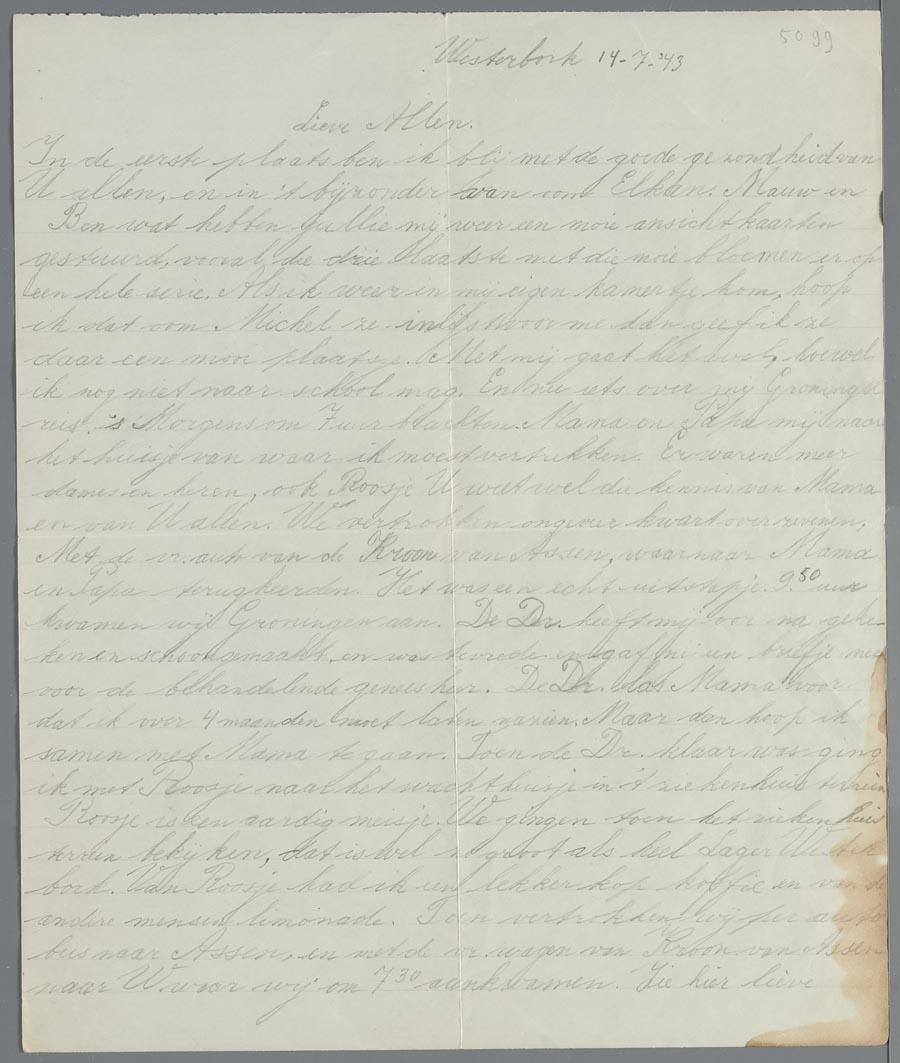 5099
Westerbork 14-7-'43
Lieve Allen.
In de eerste plaats ben ik blij met de goede gezondheid van
U allen, en in 't bijzonder van oom Elkan. Mauw en
Ben wat hebben jullie mij weer een moie ansichtkaarten
gestuurd, vooral die drie laatste met die moie bloemen er op
een hele serie. Als ik weer in mij eigen kamertje kom, hoop
ik dat oom Michel ze inlijst voor me dan geef ik ze
daar een mooi plaatsje. Met mij gaat het wel, hoewel
ik nog niet naar school mag. En nu iets over mij Groninger
reis. 's Morgens om 7 uur brachten Mama en Papa mij naar
het huisje van waar ik moest vertrekken. Er waren meer
dames en heren, ook Roosje U weet wel die kennis van Mama
en van U allen. We vertrokken ongeveer kwart over zevenen.
Met de vr. auto van de Kroon van Assen, waarnaar Mama
en Papa terugkeerden. Het was een echt uitstapje. 9.50 uur
kwamen wij Groningen aan. De Dr. heeft mij oor na geke-
ken en schoongemaakt en was tevrede en gaf mij een briefje mee
voor de behandelende geneesheer. De Dr. las Mama voor
dat ik over 4 maanden moet laten nazien. Maar dan hoop ik
samen met Mama te gaan. Toen de Dr. klaar was ging
ik met Roosje naar het wachthuisje in 't ziekenhuis terrein
Roosje is een aardig meisje. We gingen toen het zieken huis
terrein bekijken, dat is wel zo groot als heel Lager Wester
bork. Van Roosje had ik een lekker kop koffie en van de
andere mensen limonade. Toen vertrokken wij per auto
bus naar Assen, en met de vr. wagen van Kroon van Assen
naar W. waar wij om 7 30 aankwamen. Zie hier lieve